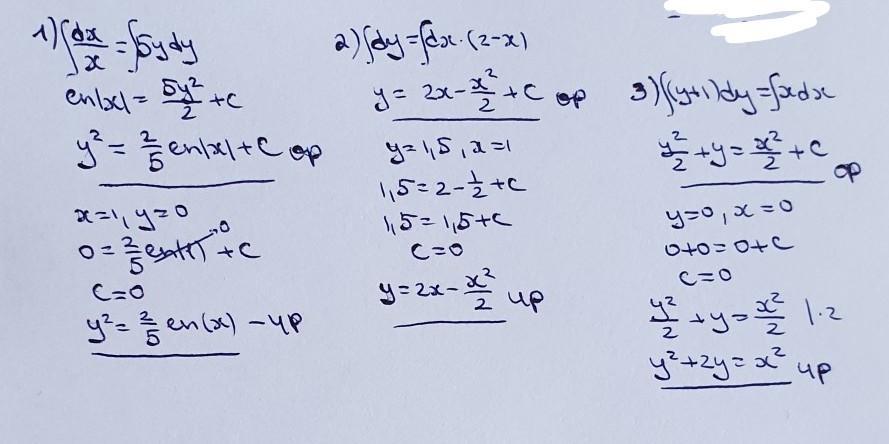 1) ∫dx/x = ∫5ydy
ln|x| = 5y²/2 + C
y² = 2/5 ln|x| + C ор
x=1, y=0
0 = 2/5 ln(1) →0 + C
C=0
y² = 2/5 ln(x) - чр
2) ∫dy = ∫dx·(2-x)
y = 2x - x²/2 + C ор
y = 1,5, x=1
1,5 = 2 - 1/2 + C
1,5 = 1,5 + C
C=0
y = 2x - x²/2 чр
3) ∫(y+1)dy = ∫xdx
y²/2 + y = x²/2 + C ор
y=0, x=0
0+0=0+C
C=0
y²/2 + y = x²/2 |·2
y² + 2y = x² чр